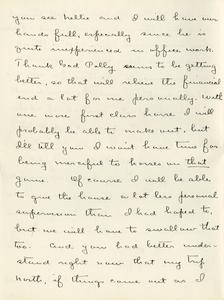 you see Nellie and I will have our
hands full, especially since he is
quite inexperienced in office work.
Thank God Polly seems to be getting
better, so that will relieve the financial
end a lot for me personally. With
one more first class horse I will
probably be able to make out, but
I'll tell you I won't have time for
being merciful to horses on that
game. Of course I will be able
to give the house a lot less personal
supervision than I had hoped to,
but we will have to swallow that
too. And you had better under-
stand right now that my trip
north, if things come out as I